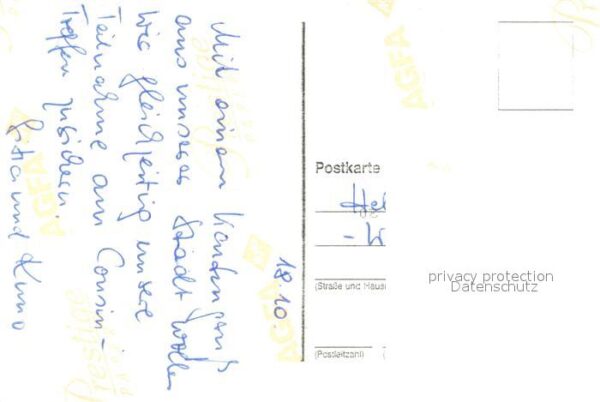 Mit einem Kartengruß
aus unserer Stadt wollen
wir gleichzeitig unsere
Teilnahme am Cousin-
Treffen zusichern.
und Kuno
18.10.
AGFA
AGFA
AGFA
Postkarte
(Straße und Haus
(Postleitzahl)
privacy protection
Datenschutz